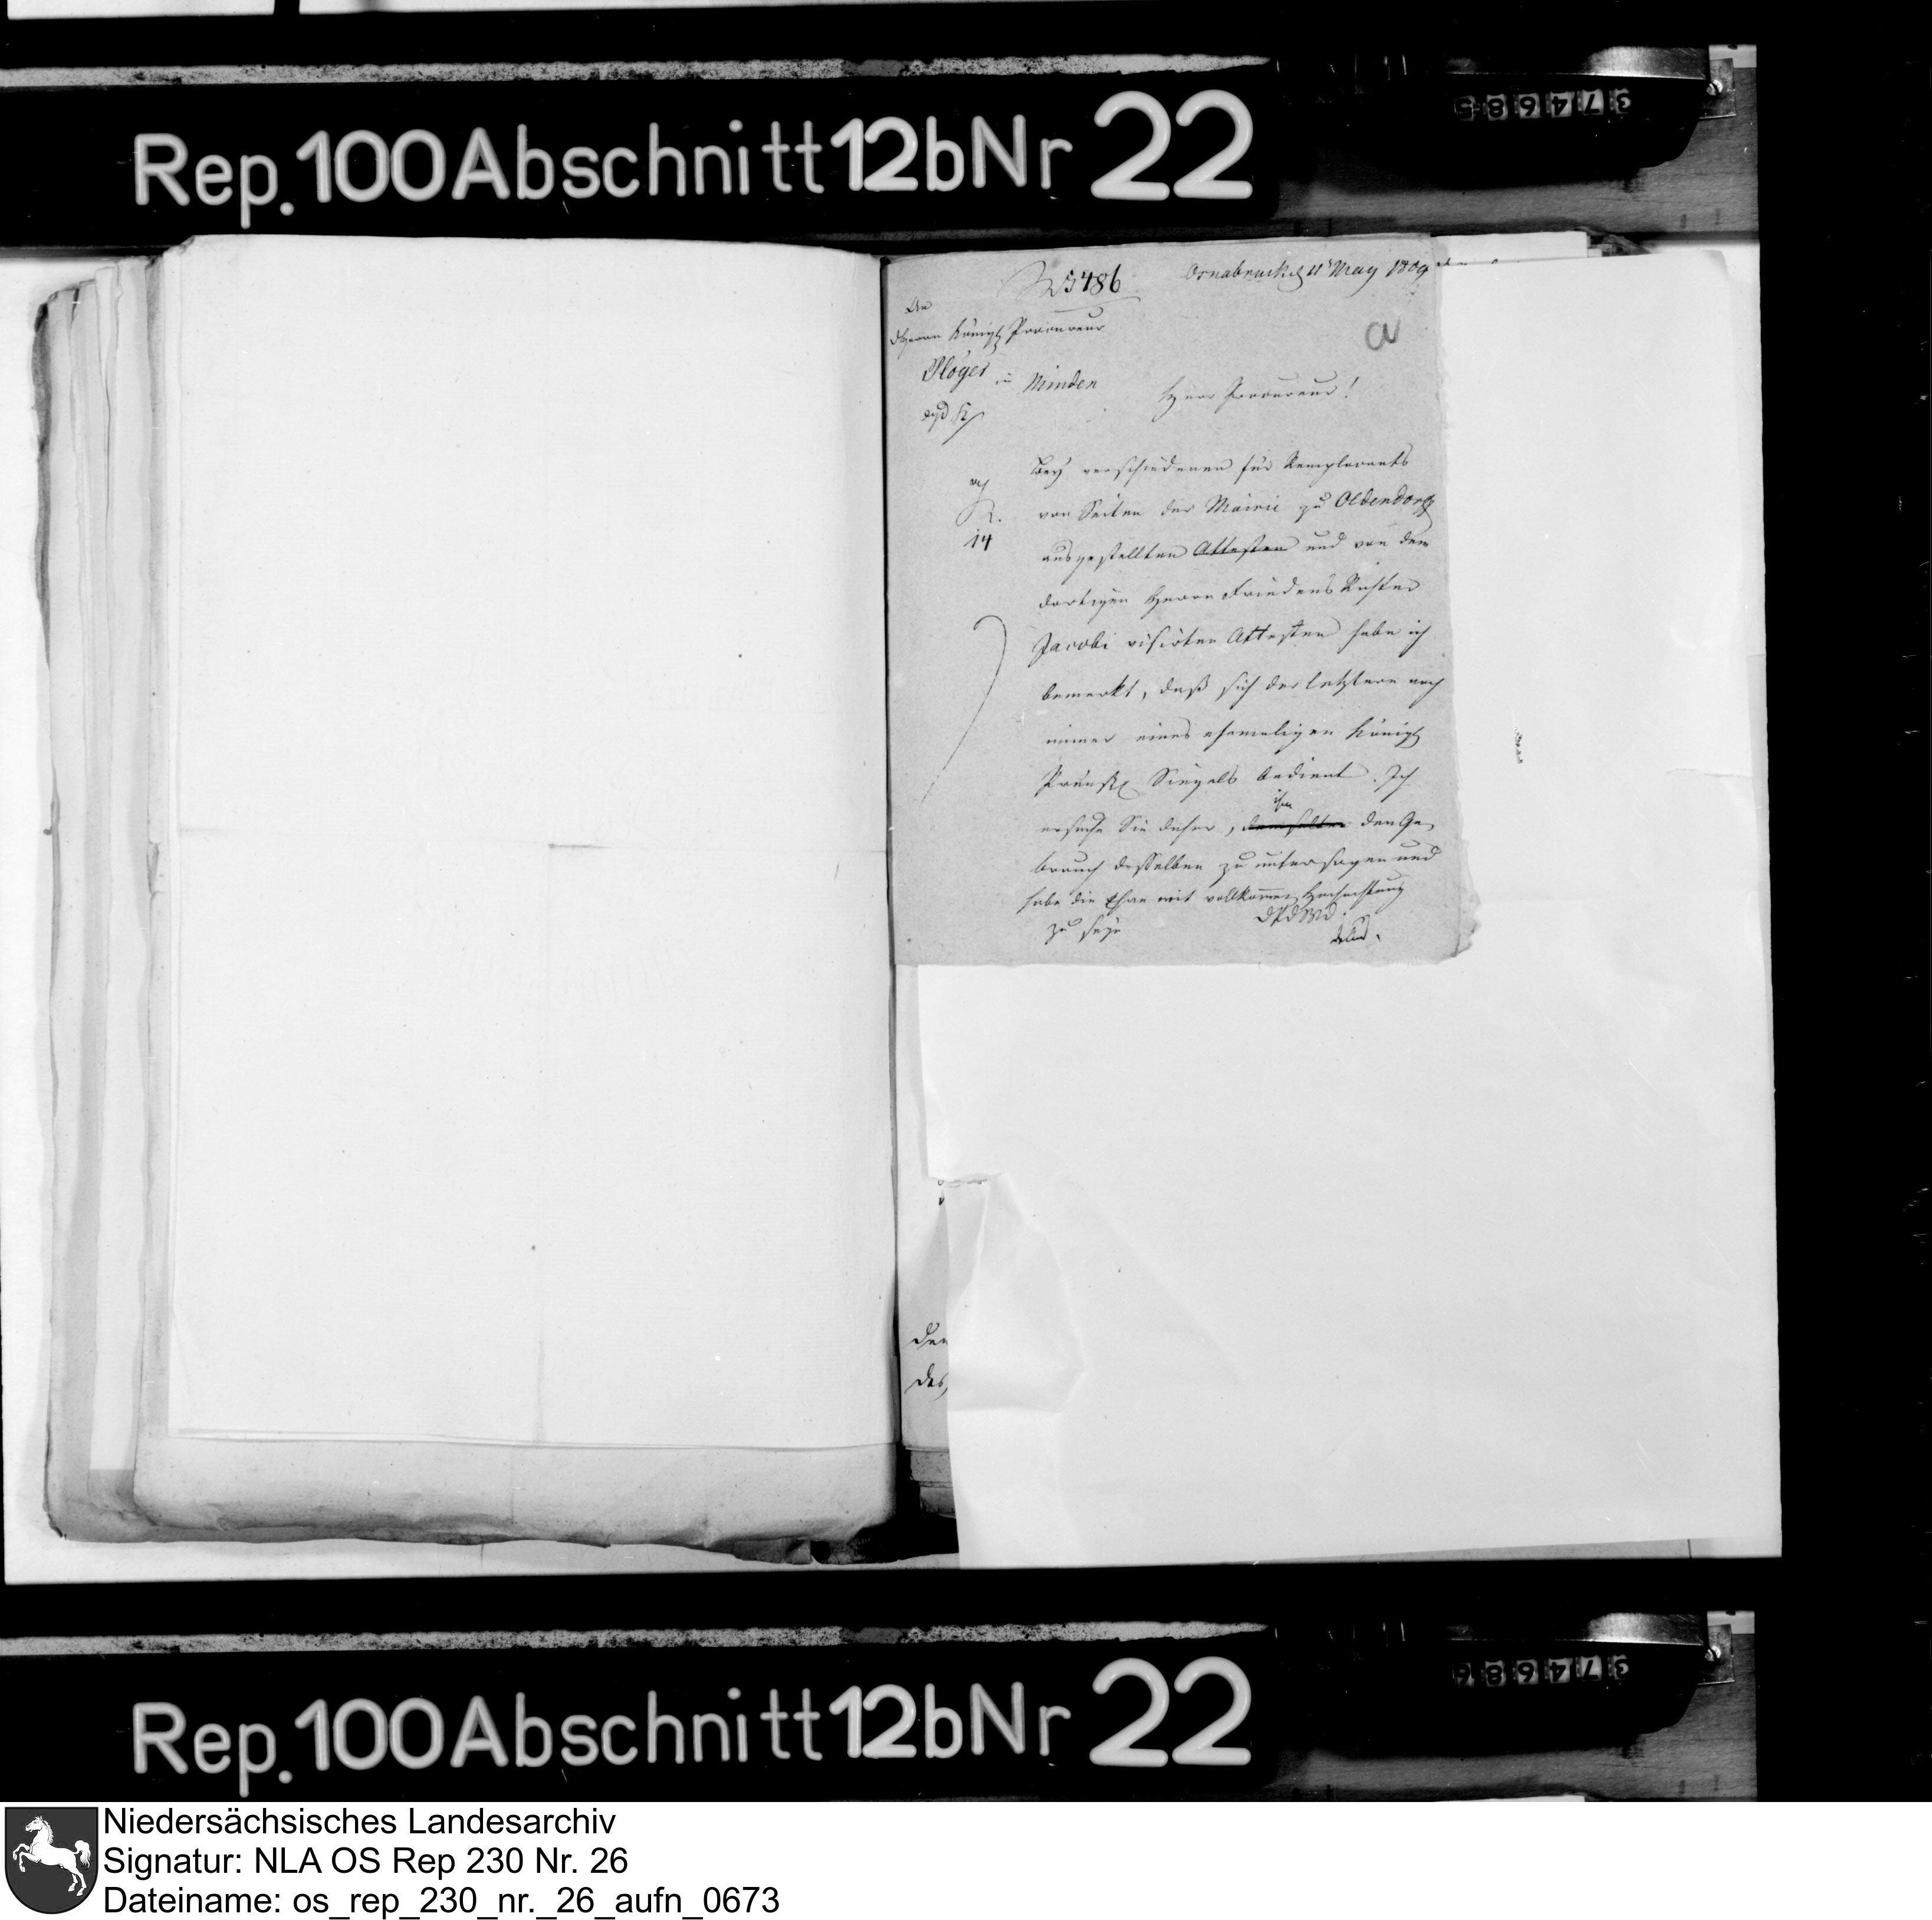 Rep. 100 Abschnitt 12b Nr 22
374685
N 5486
Osnabruck d 11t May 1809
a
An
d Herrn Königl Procureur
Plöger in Minden
Herr Procureur!
14
Bey verschiedenen für Remplacants
von Seiten der Mairie zu Oldendorff
ausgestellten Attesten und von dem
dortigen Herrn Friedens Richter
Jacobi visirten Attesten habe ich
bemerkt, daß sich der letztere noch
immer eines ehemaligen Königl
Preuß. Siegels bedient. Ich
ersuche Sie daher, demselben ihm den Ge
brauch desselben zu untersagen und
habe die Ehre mit vollkommen Hochachtung
zu seyn
den
des
Rep. 100 Abschnitt 12b Nr 22
374686
Niedersächsisches Landesarchiv
Signatur: NLA OS Rep 230 Nr. 26
Dateiname: os_rep_230_nr._26_aufn_0673